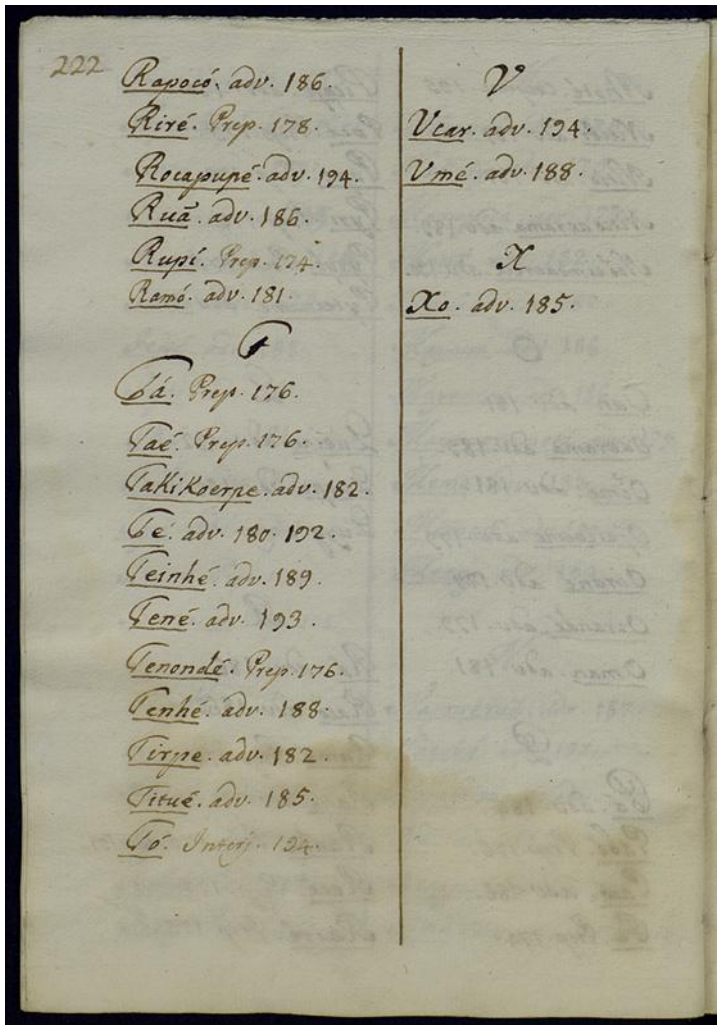 222
Rapocó. adv. 186.
Riré. Prep. 178.
Rocapupé. adv. 194.
Ruã. adv. 186.
Rupí. Prep. 174.
Ramó. adv. 181.
T
Tá. Prep. 176.
Taé. Prep. 176.
TaKiKoerpe. adv. 182.
Té. adv. 180. 192.
Teinhé. adv. 189.
Tené. adv. 193.
Tenondé. Prep. 176.
Tenhé. adv. 188.
Tirpe. adv. 182.
Titué. adv. 185.
Tó. Interj. 194.
V
Vcar. adv. 194.
Vmé. adv. 188.
X
Xo. adv. 185.